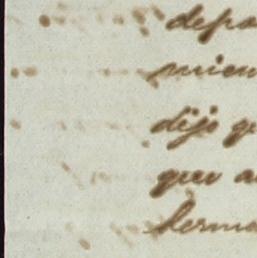 depo
mien
dijo q
que a
herma